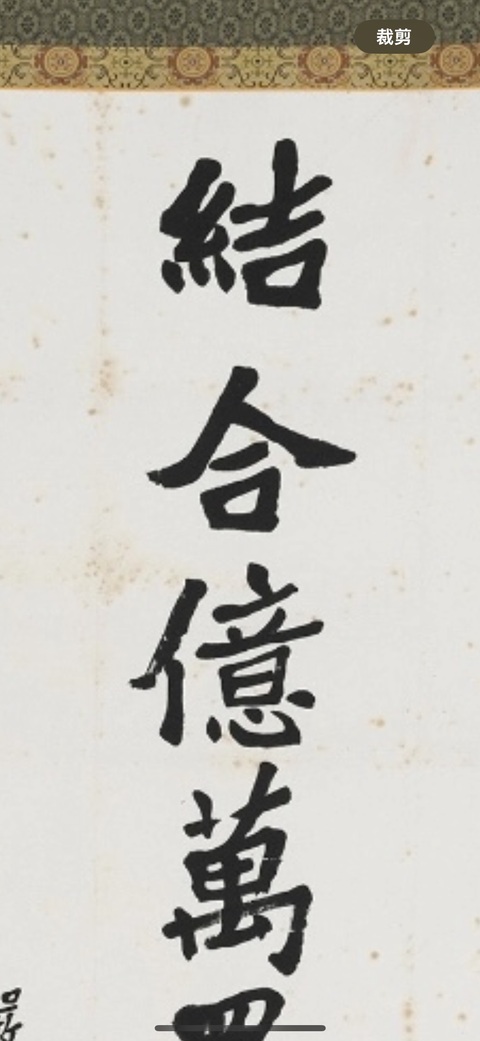 裁剪
結合億萬